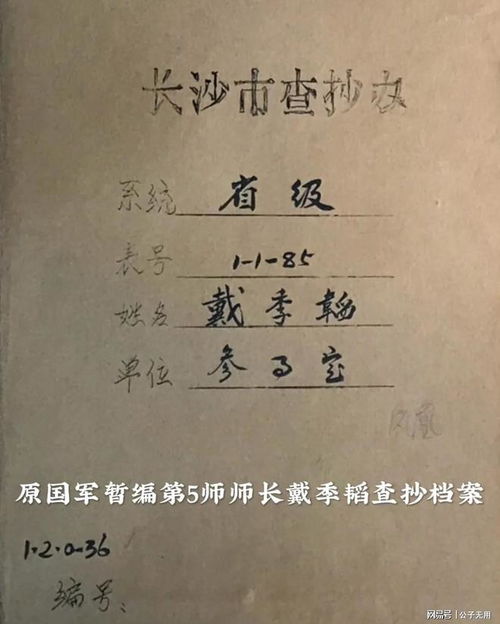 长沙市查抄办
系统 省级
表号 1-1-85
姓名 戴季韬
单位 参事室
凤凰
原国军暂编第5师师长戴季韬查抄档案
1·2·0-36
编号:
网易号 | 公子无用